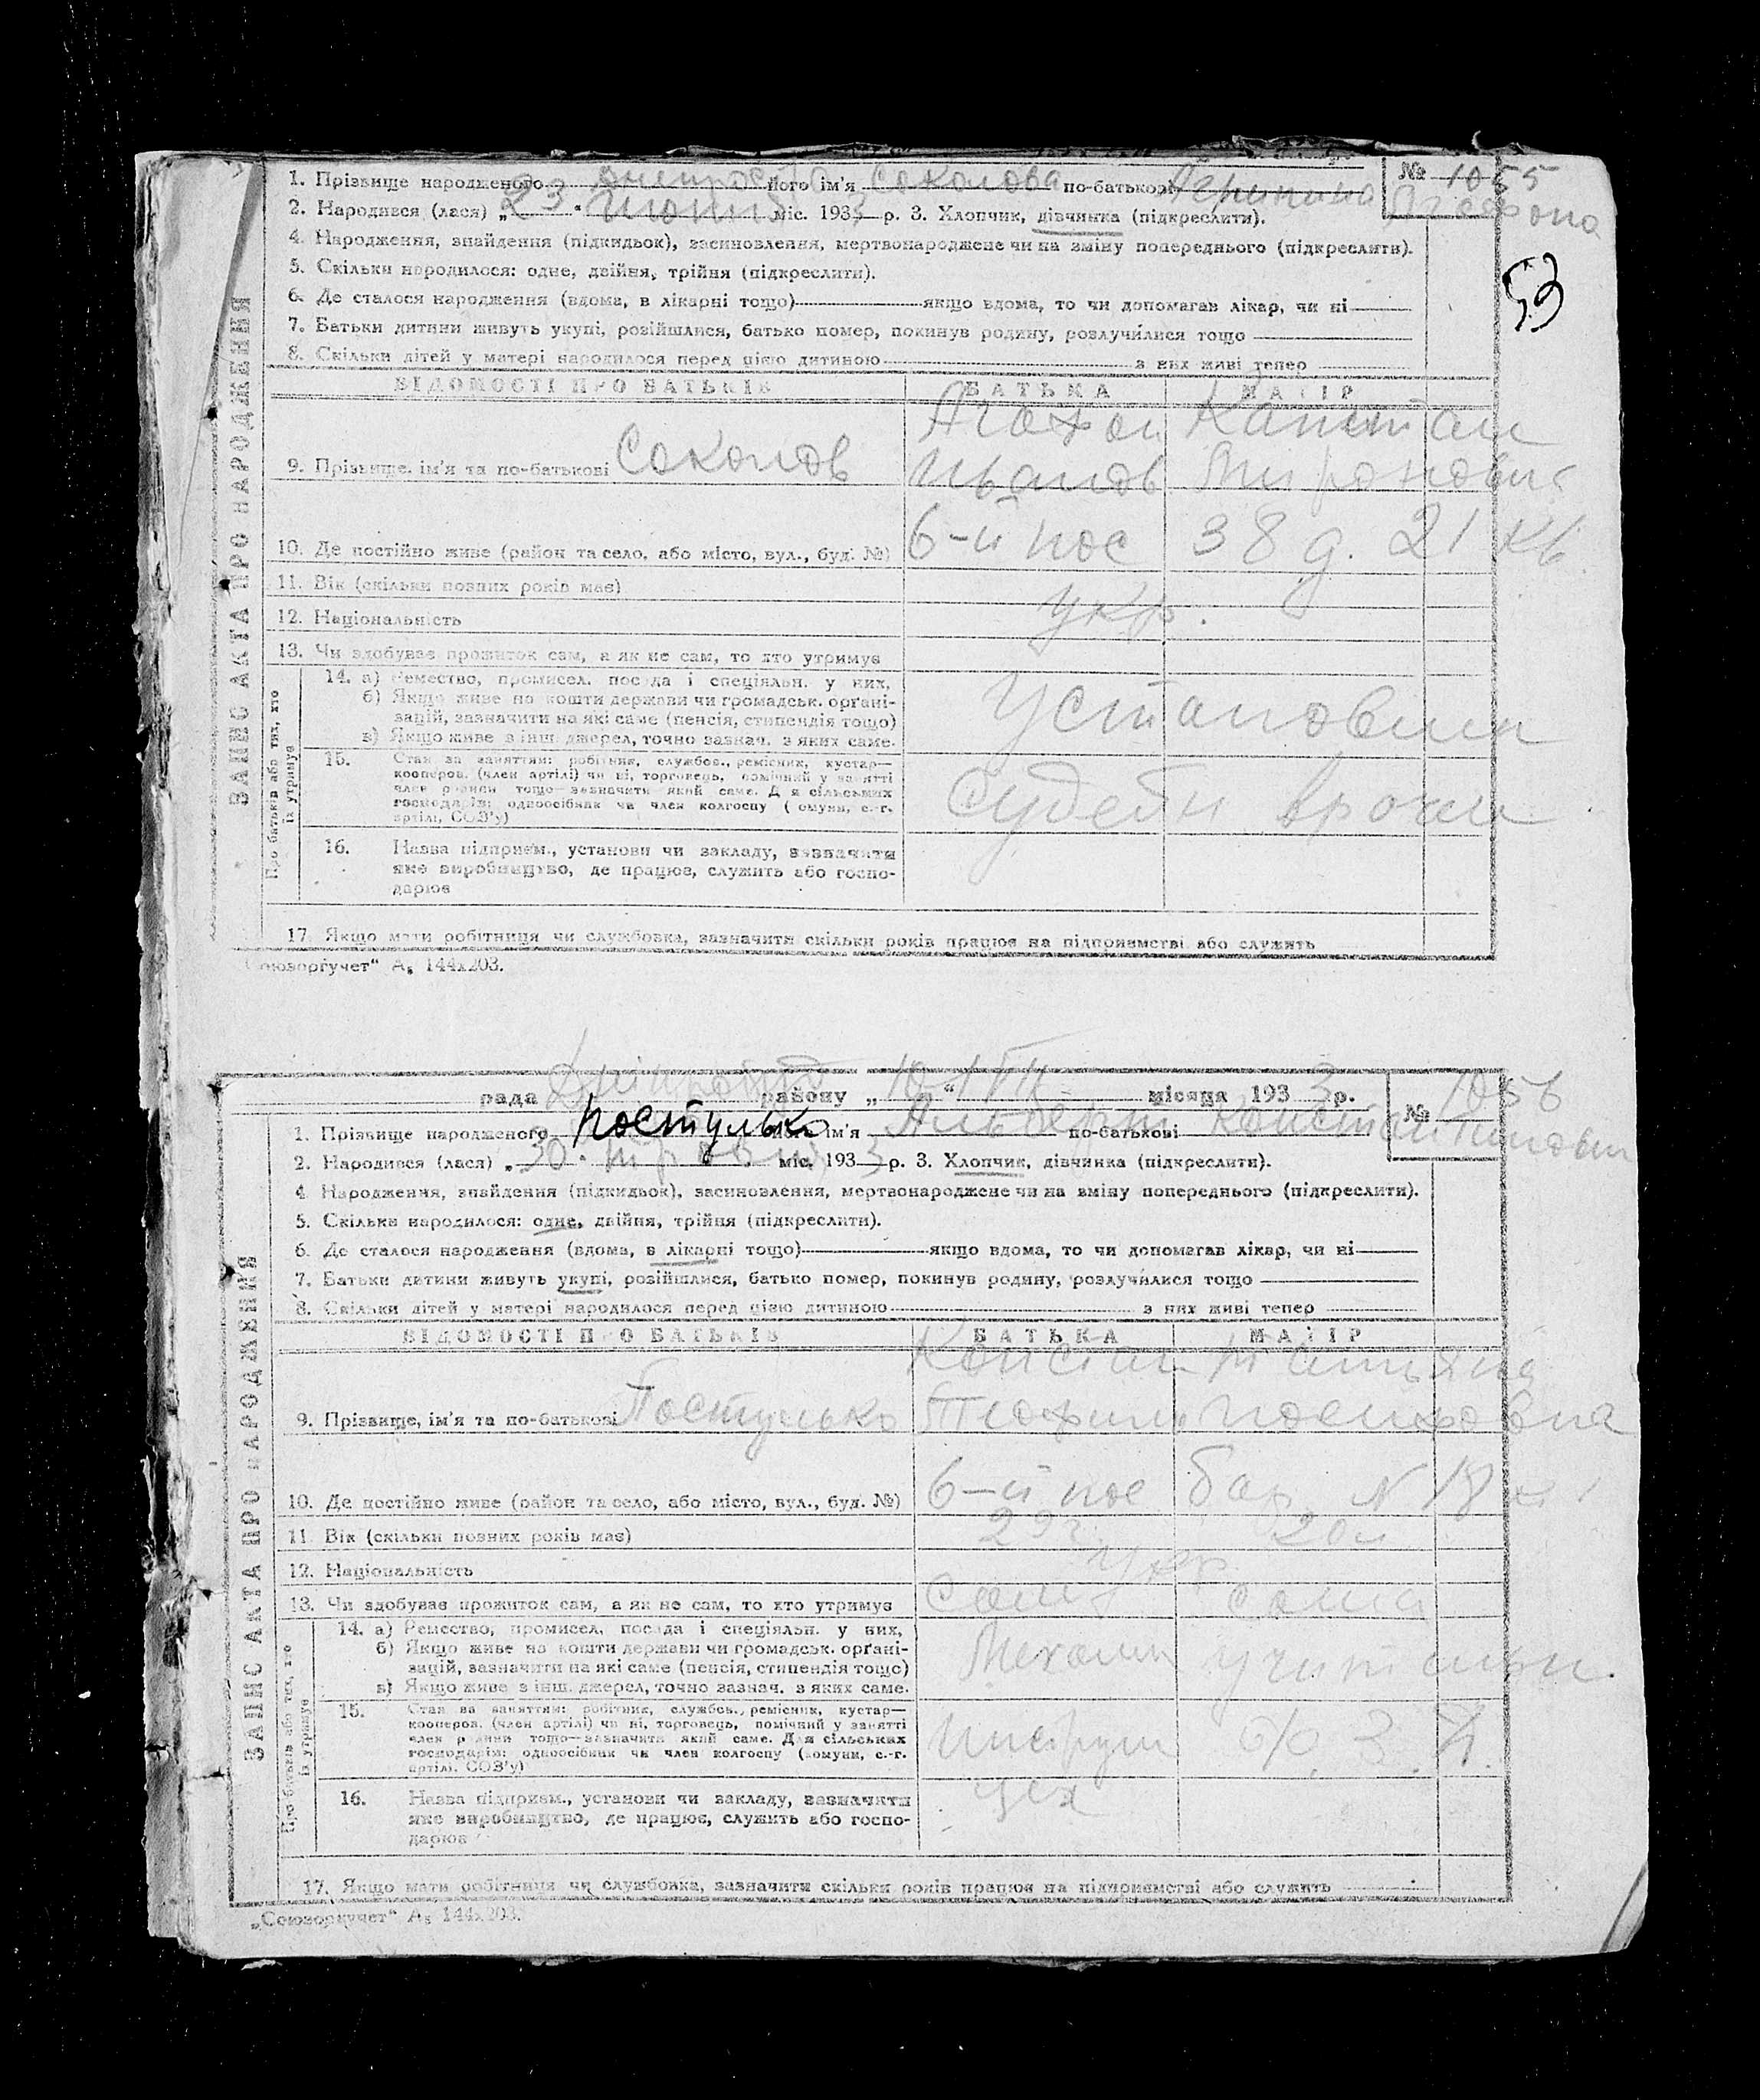 № 1055
1. Прізвище народженого його ім'я Соколова по-батькові
2. Народився (лася) „23" міс. 1933 р. 3. Хлопчик, дівчинка (підкреслити).
4. Народження, знайдення (підкидьок), засиновлення, мертвонароджене чи на зміну попереднього (підкреслити).
53
5. Скільки народилося: одне, двійня, трійня (підкреслити).
6. Де сталося народження (вдома, в лікарні тощо) якщо вдома, то чи допомагав лікар, чи ні
7. Батьки дитини живуть укупі, розійшлися, батько помер, покинув родину, розлучилися тощо
8. Скільки дітей у матері народилося перед цією дитиною з них живі тепер
ЗАПИС АКТА ПРО НАРОДЖЕННЯ
ВІДОМОСТІ ПРО БАТЬКІВ БАТЬКА МАТІР
9. Прізвище, ім'я та по-батькові Соколов
10. Де постійно живе (район та село, або місто, вул., буд. №) 6-й пос 38 д. 21 кв.
11. Вік (скільки повних років має)
12. Національність укр.
13. Чи здобуває прожиток сам, а як не сам, то хто утримує
Про батьків або тих, хто їх утримує
14. а) Ремество, промисел, посада і спеціяльн. у них,
б) Якщо живе на кошти держави чи громадськ. орґані-
зацій, зазначити на які саме (пенсія, стипендія тощо)
в) Якщо живе з інш. джерел, точно зазнач. з яких саме.
15. Стан за заняттям: робітник, службов., ремісник, кустар—
кооперов. (член артілі) чи ні, торговець, помічний у занятті
член родини тощо—зазначити який саме. Для сільських
господарів: одноосібник чи член колгоспу (комуни, с.-г.
артілі, СОЗ'у)
16. Назва підприєм., установи чи закладу, зазначити
яке виробництво, де працює, служить або госпо-
дарює
17. Якщо мати робітниця чи службовка, зазначити скільки років працює на підприємстві або служить
„Союзоргучет" А₅ 144х203.
рада району „10" VII місяця 1933 р. № 1056
1. Прізвище народженого Постулько його ім'я Альберт по-батькові Константинович
2. Народився (лася) „30" травня міс. 1933 р. 3. Хлопчик, дівчинка (підкреслити).
4. Народження, знайдення (підкидьок), засиновлення, мертвонароджене чи на зміну попереднього (підкреслити).
5. Скільки народилося: одне, двійня, трійня (підкреслити).
6. Де сталося народження (вдома, в лікарні тощо) якщо вдома, то чи допомагав лікар, чи ні
7. Батьки дитини живуть укупі, розійшлися, батько помер, покинув родину, розлучилися тощо
8. Скільки дітей у матері народилося перед цією дитиною з них живі тепер
ЗАПИС АКТА ПРО НАРОДЖЕННЯ
ВІДОМОСТІ ПРО БАТЬКІВ БАТЬКА МАТІР
Констан Татьяна
9. Прізвище, ім'я та по-батькові Постулько Иосифовна
10. Де постійно живе (район та село, або місто, вул., буд. №) 6-й пос бар. N 18
11. Вік (скільки повних років має) 29 20
12. Національність укр
13. Чи здобуває прожиток сам, а як не сам, то хто утримує сам сама
Про батьків або тих, хто їх утримує
14. а) Ремество, промисел, посада і спеціяльн. у них,
б) Якщо живе на кошти держави чи громадськ. орґані-
зацій, зазначити на які саме (пенсія, стипендія тощо)
в) Якщо живе з інш. джерел, точно зазнач. з яких саме.
Механик
15. Стан за заняттям: робітник, службов., ремісник, кустар—
кооперов. (член артілі) чи ні, торговець, помічний у занятті
член родини тощо—зазначити який саме. Для сільських
господарів: одноосібник чи член колгоспу (комуни, с.-г.
артілі, СОЗ'у)
16. Назва підприєм., установи чи закладу, зазначити
яке виробництво, де працює, служить або госпо-
дарює
цех
17. Якщо мати робітниця чи службовка, зазначити скільки років працює на підприємстві або служить
„Союзоргучет" А₅ 144х203.